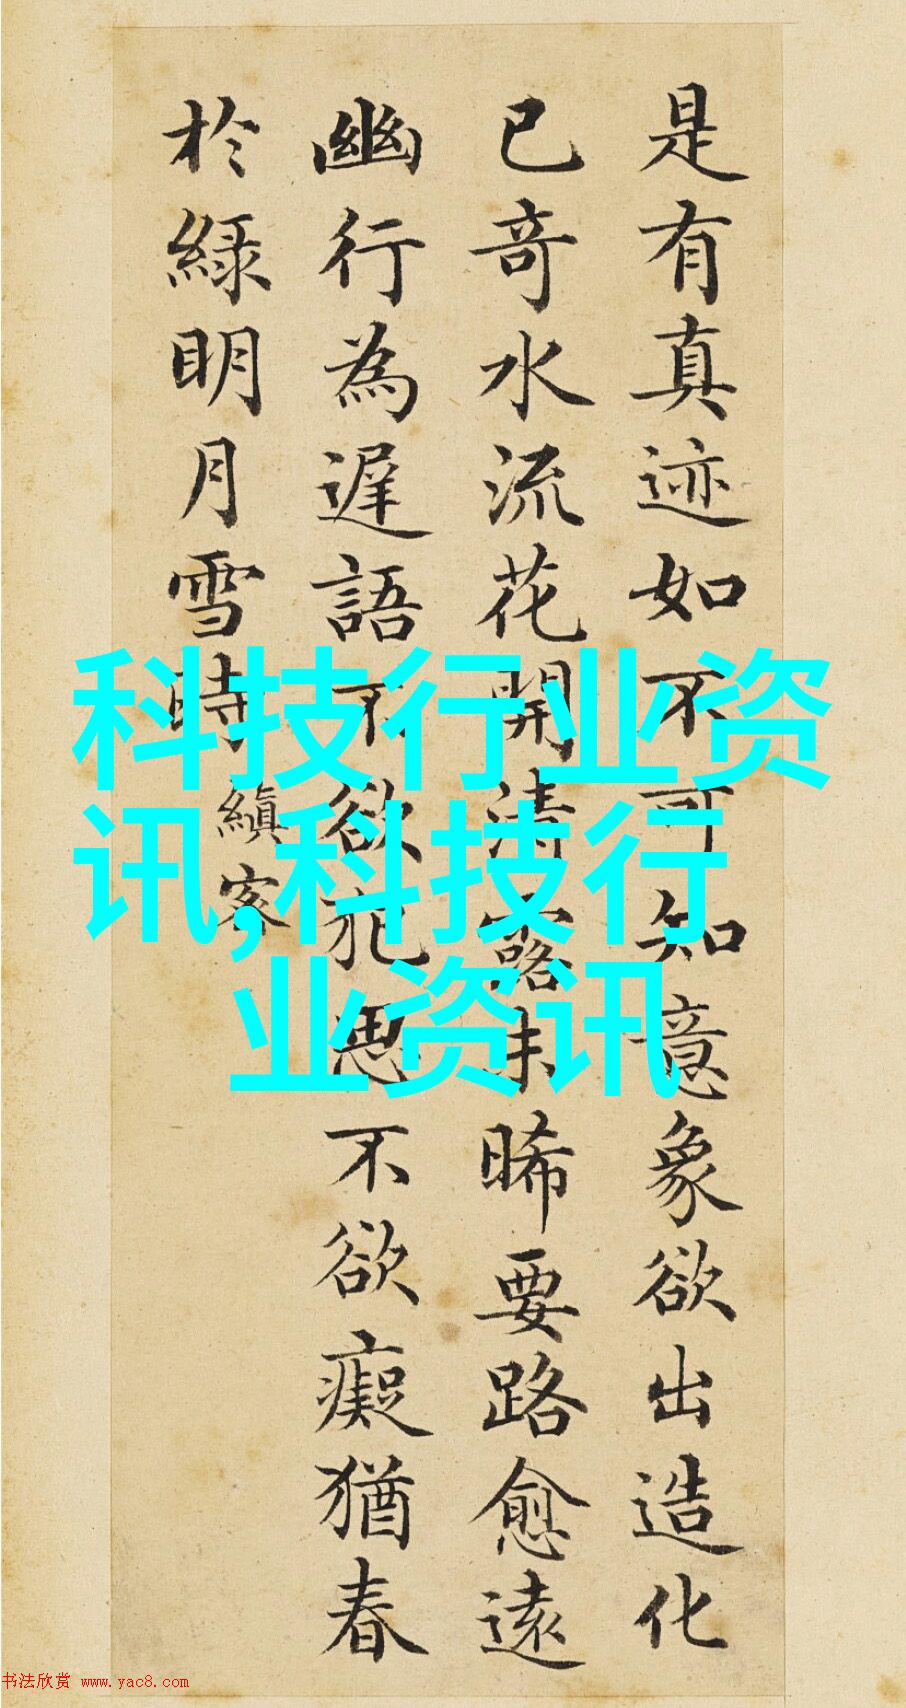 是有真迹如不可知意象欲出造化
已奇水流花開清露未晞要路愈遠
幽行為遲語不欲犯思不欲癡猶春
於綠明月雪時
縝客
科技行业资
讯,科技行
业资讯
书法欣赏 www.yac8.com